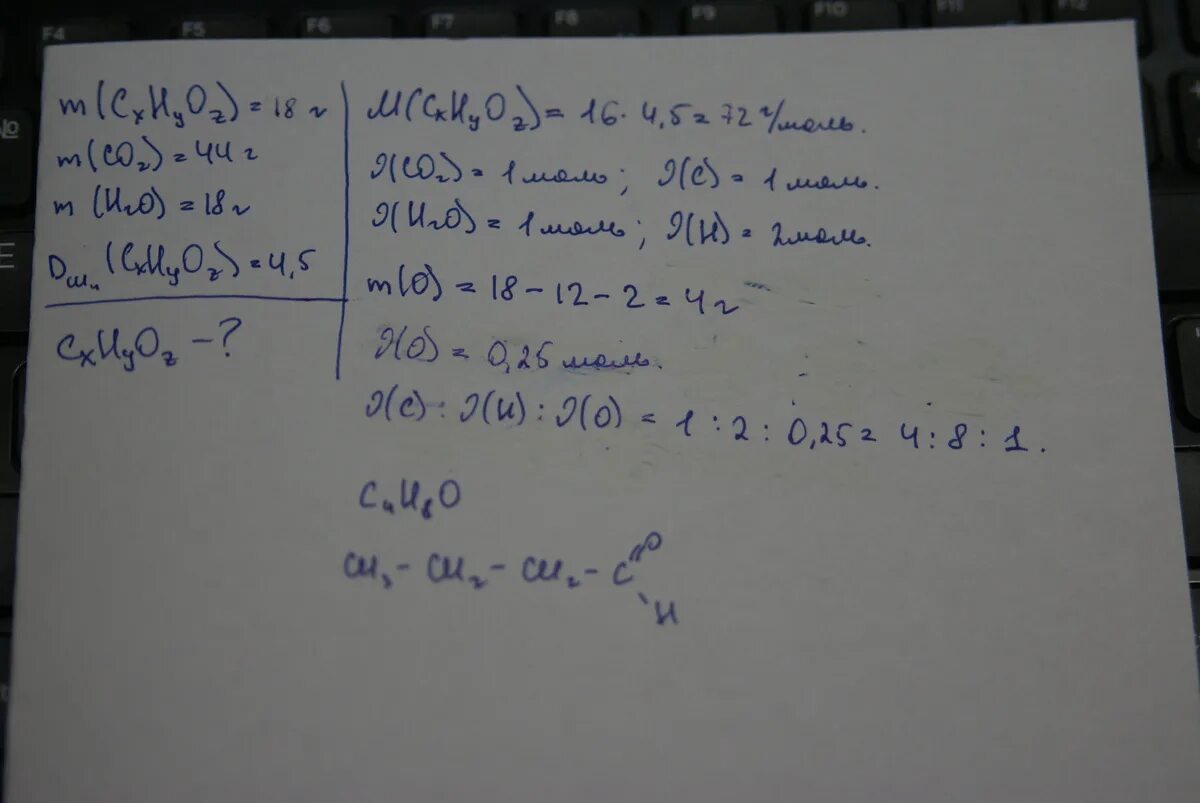 F4 F5 F6 F7 F8 F9 F10 F11 F12
m(CxHyOz) = 18 г
m(CO2) = 44 г
m(H2O) = 18 г
DCH4(CxHyOz) = 4,5
CxHyOz - ?
M(CxHyOz) = 16 · 4,5 = 72 г/моль.
ν(CO2) = 1 моль; ν(C) = 1 моль.
ν(H2O) = 1 моль; ν(H) = 2 моль.
m(O) = 18 - 12 - 2 = 4 г
ν(O) = 0,25 моль.
ν(C) : ν(H) : ν(O) = 1 : 2 : 0,25 = 4 : 8 : 1.
C4H8O
CH3 - CH2 - CH2 - C
O
H
№
E